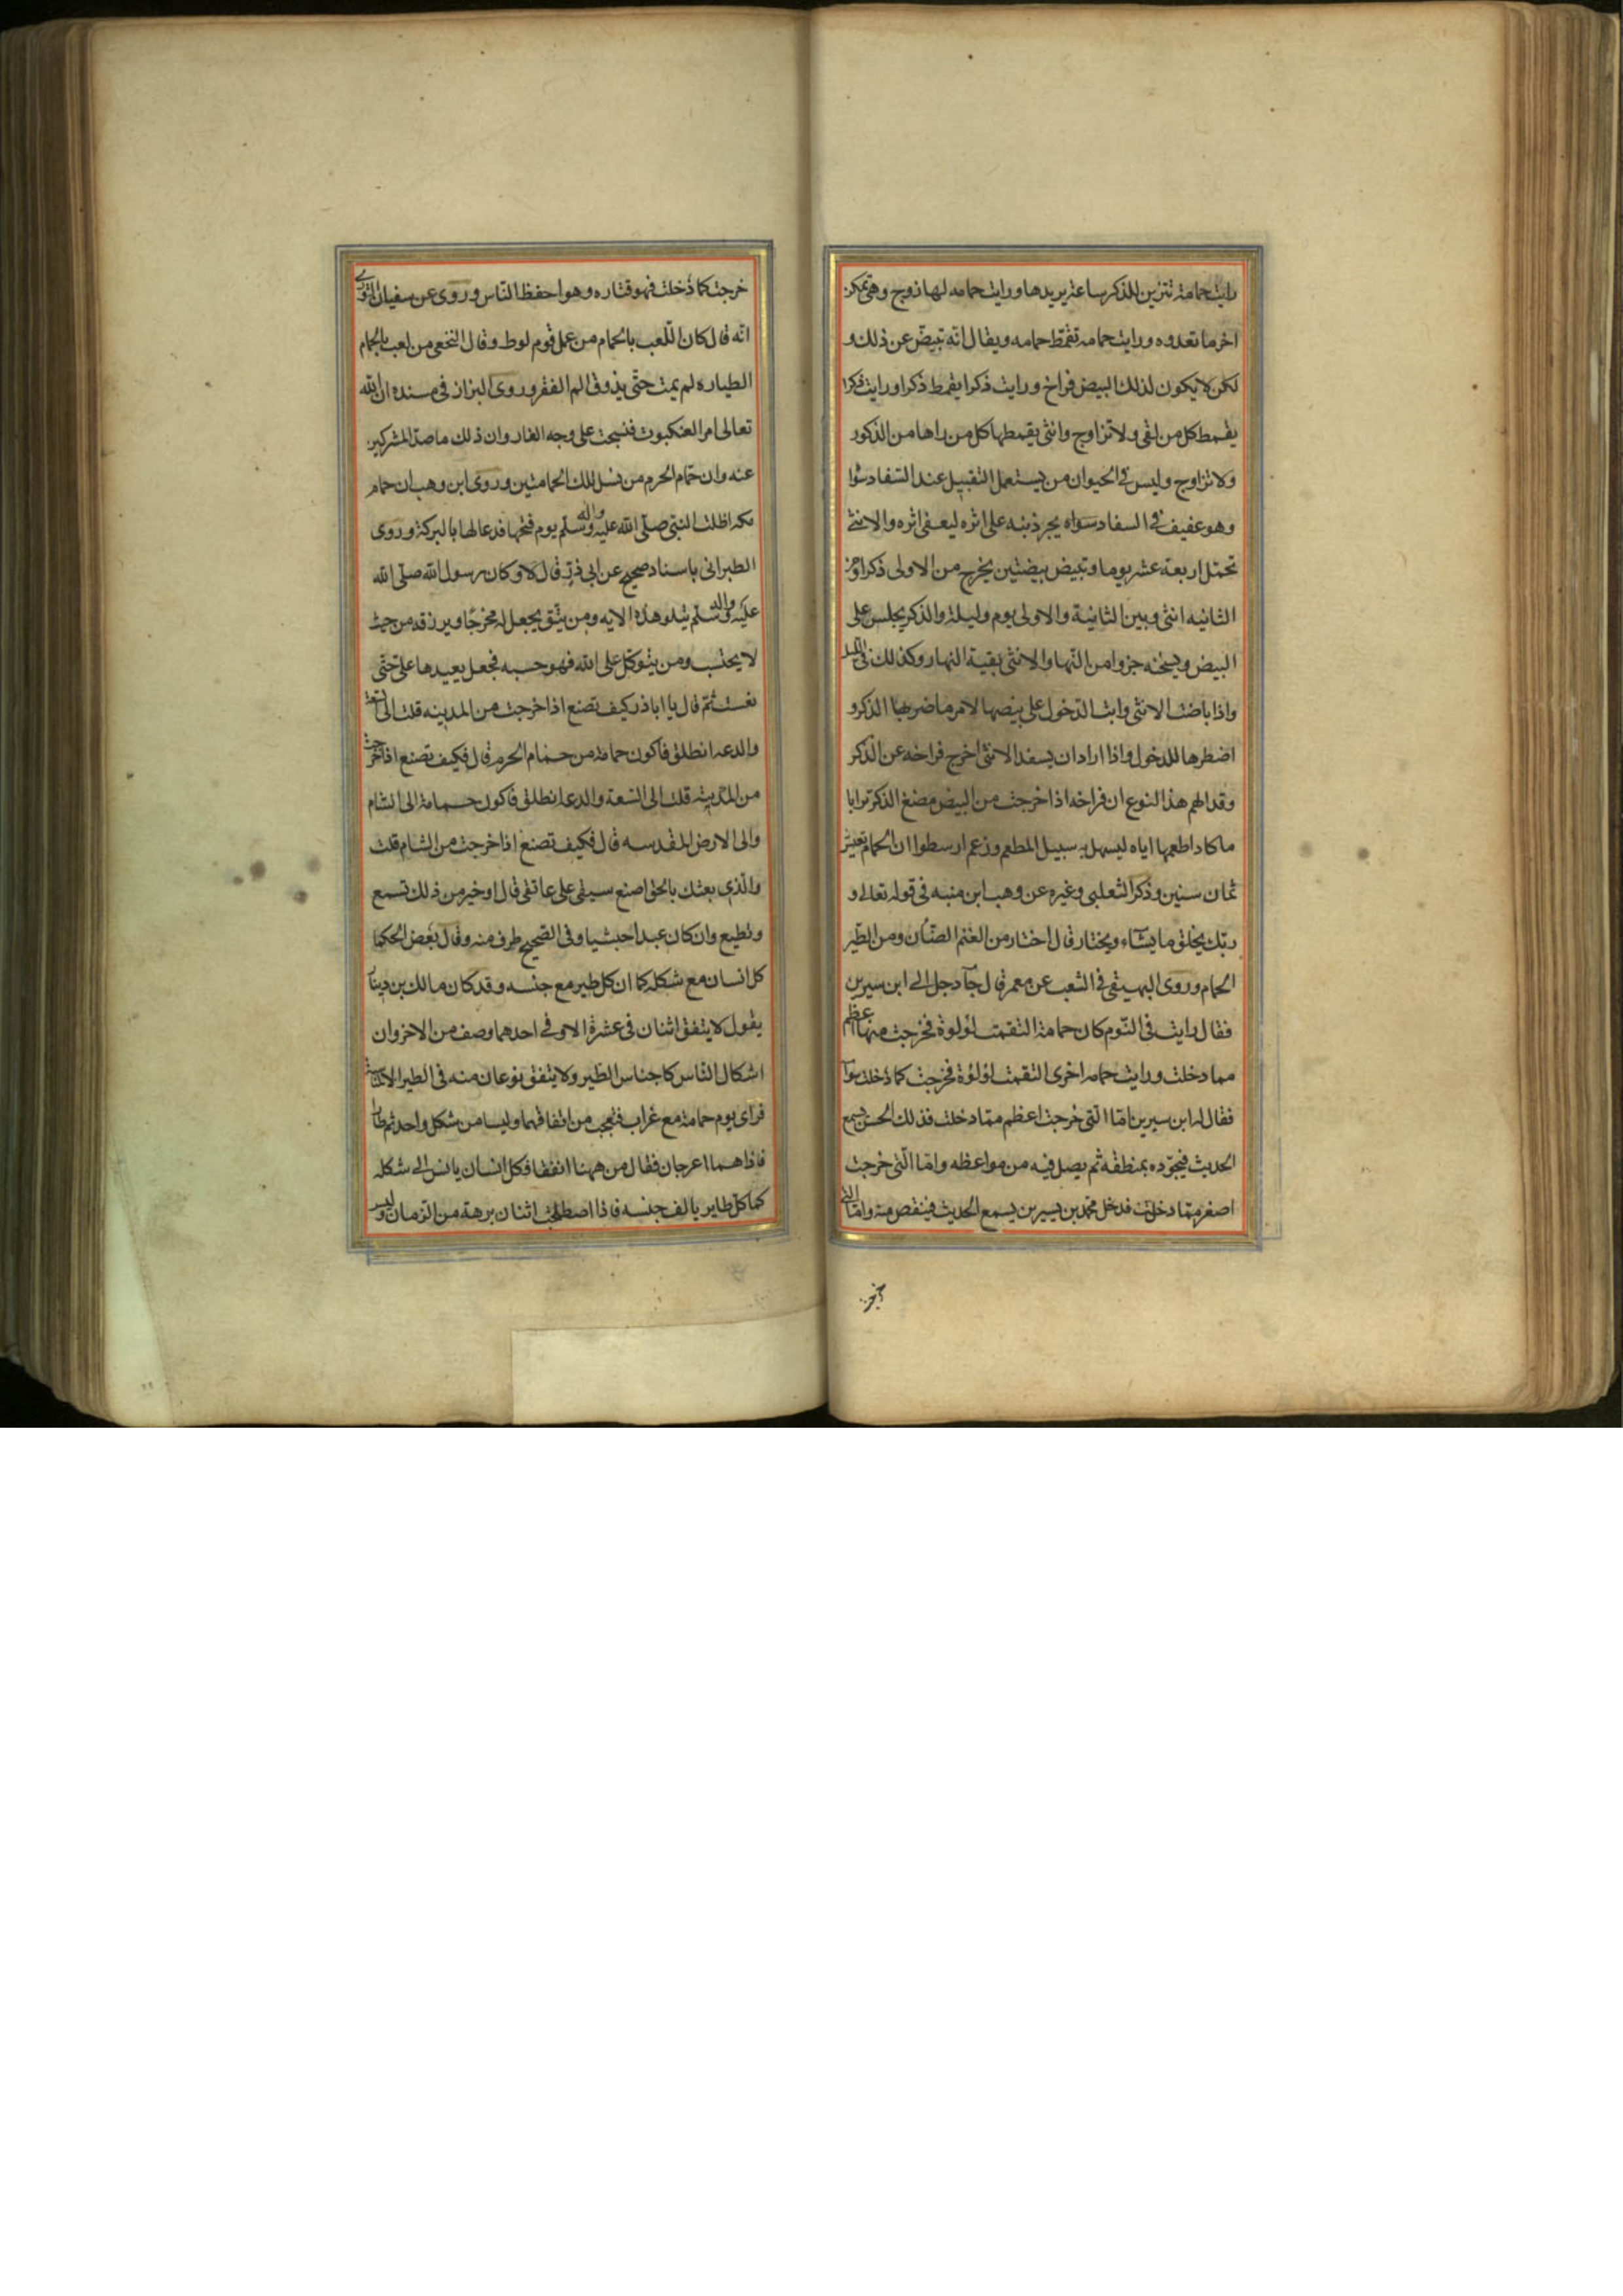 رایت حمامة تتزین للذکر ساعة یریدها ورایت حمامه لها زوج وهی تمکن
اخر ما تعدوه ورایت حمامه تقمط حمامه ویقال انه تبیض عن ذلک و
لکن لا یکون لذلک البیض فراخ ورایت ذکرا یقمط ذکرا ورایت ذکرا
یقمط کل من لقی ولا تزاوج وانثی یقمطها کل من راها من الذکور
ولا تزاوج ولیس فی الحیوان من یستعمل التقبیل عند السفاد سوا
وهو عفیف فی السفاد سواه یجر ذنبه علی اثره لیعفی اثره والانثی
تحمل اربعة عشر یوما وتبیض بیضتین یخرج من الاولی ذکر او من
الثانیه انثی وبین الثانیة والاولی یوم ولیلة والذکر یجلس علی
البیض ویسخنه جزوا من النهار والانثی بقیة النهار وکذلک فی اللیل
واذا باضت الانثی وابت الدخول علی بیضها لامر ما ضربها الذکر و
اضطرها للدخول واذا اراد ان یسفد الانثی اخرج فراخه عن الذکر
وقد الهم هذا النوع ان فراخه اذا خرجت من البیض مضغ الذکر ترابا
ما کاد اطعمها ایاه لیسهل به سبیل المطعم وزعم ارسطوا ان الحمام تعیش
ثمان سنین وذکر الثعلبی وغیره عن وهب ابن منبه فی قوله تعالی و
ربک یخلق ما یشاء ویختار قال اختار من الغنم الضان ومن الطیر
الحمام وروی البهیقی فی الشعب عن معمر قال جآء رجل الی ابن سیرین
فقال رایت فی النوم کان حمامة التقمت لؤلوة فخرجت منها اعظم
مما دخلت ورایت حمامه اخری التقمت لؤلؤة فخرجت کما دخلت سوآ
فقال له ابن سیرین اما التی خرجت اعظم مما دخلت فذلک الحسن یسمع
الحدیث فیجوده بمنطقه ثم یصل فیه من مواعظه واما التی خرجت
اصغر مما دخلت فدخل محمد بن سیرین یسمع الحدیث فینقص منه واما التی
خرجت کما دخلت فهو قتاره وهو احفظ الناس وروی عن سفیان الثوری
انه قال کان اللعب بالحمام من عمل قوم لوط وقال النخعی من لعب بالحمام
الطیاره لم یمت حتی یذوق الم الفقر وروی البزاز فی مسنده ان الله
تعالی امر العنکبوت فنسجت علی وجه الغار وان ذلک ما صد المشرکین
عنه وان حمام الحرم من نسل تلک الحمامتین وروی ابن وهب ان حمام
مکه اظلت النبی صلی الله علیه واله وسلم یوم فتحها فدعا لها بالبرکة وروی
الطبرانی باسناد صحیح عن ابی ذر قال کان رسول الله صلی الله
علیه واله وسلم یتلو هذه الایه ومن یتق یجعل له مخرجا ویرزقه من حیث
لا یحتسب ومن یتوکل علی الله فهو حسبه فجعل یعیدها علی حتی
نعست ثم قال یا اباذر کیف تصنع اذا خرجت من المدینه قلت الی السعة
والدعه انطلق فاکون حمامة من حمام الحرم قال فکیف تصنع اذا خرجت
من المدینه قلت الی السعة والدعه انطلق فاکون حمامة الی الشام
والی الارض المقدسه قال فکیف تصنع اذا خرجت من الشام قلت
والذی بعثک بالحق اضع سیفی علی عاتقی قال اوخیر من ذلک تسمع
وتطیع وان کان عبدا حبشیا وفی الصحیح طرف منه وقال بعض الحکما
کل انسان مع شکله کما ان کل طیر مع جنسه وقد کان مالک بن دینار
یقول لا یتفق اثنان فی عشرة الا وفی احدهما وصف من الاخر وان
اشکال الناس کاجناس الطیر ولا یتفق نوعان منه فی الطیر الا لمناسبة
فرای یوم حمامة مع غراب فتعجب من اتفاقهما ولیسا من شکل واحد ثم طار
فاذا هما اعرجان فقال من ههنا اتفقا فکل انسان یانس الی شکله
کما کل طایر یالف جنسه فاذا اصطحب اثنان برهة من الزمان ولیس